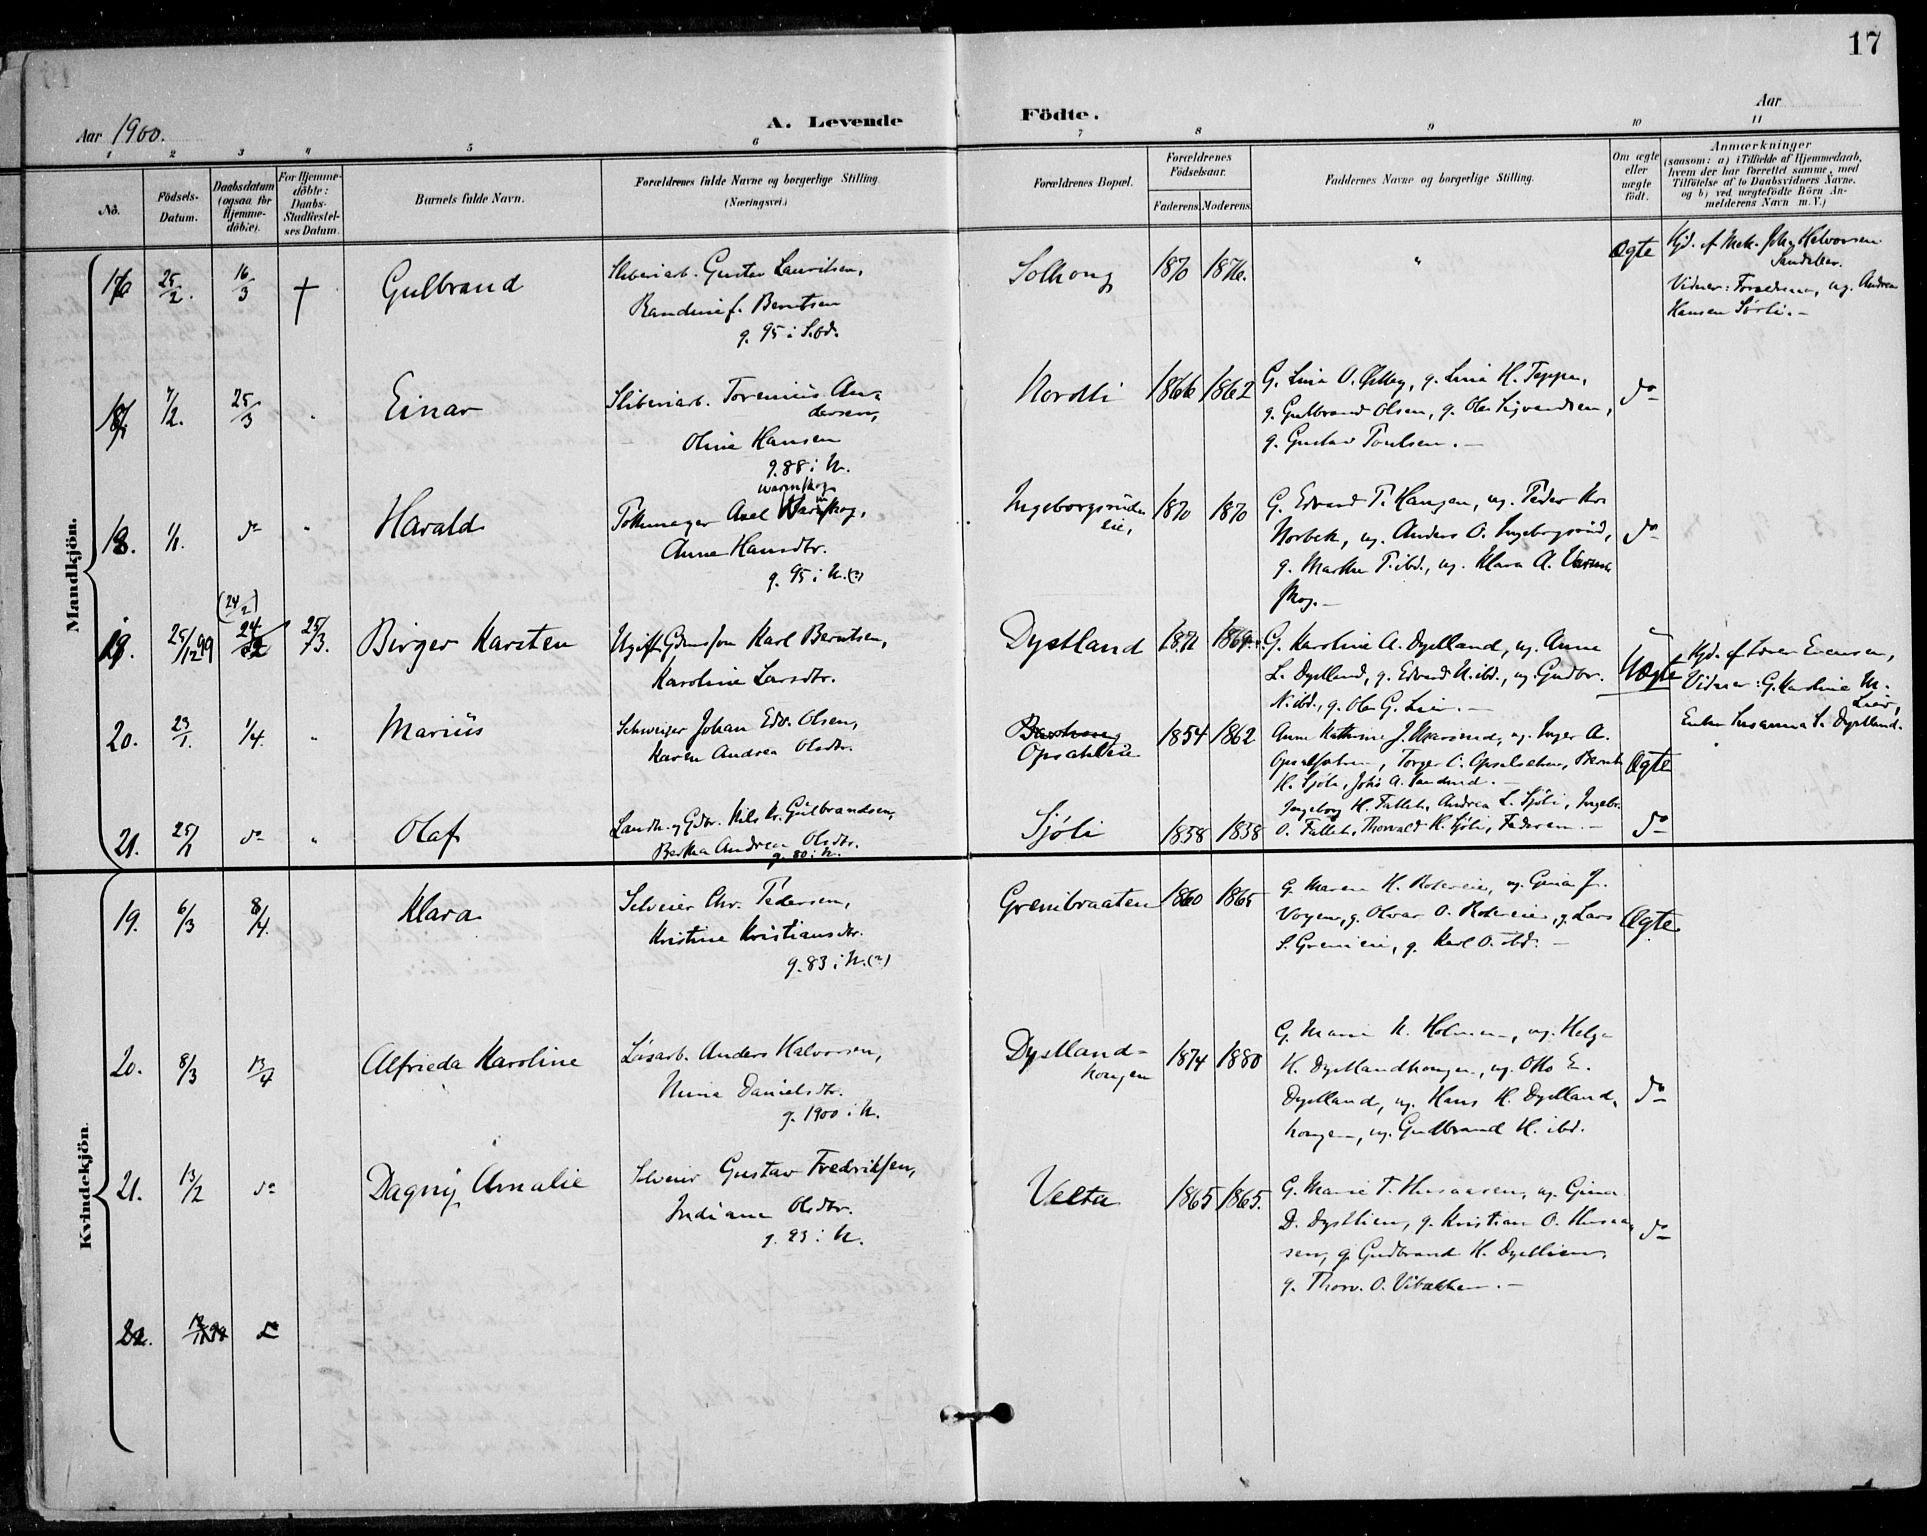 17
Aar 1900.
A. Levende Födte.
Aar
1 2 3 4 5 6 7 8 9 10 11
No.
Födsels-Datum.
Daabsdatum (ogsaa for Hjemme-döbte).
For Hjemme-döbte: Daabs-Stadfæstel-ses Datum.
Barnets fulde Navn.
Forældrenes fulde Navne og borgerlige Stilling.
(Næringsvei.)
Forældrenes Bopæl.
Forældrenes Födselsaar.
Faderens. Moderens.
Faddernes Navne og borgerlige Stilling.
Om ægte eller uægte födt.
Anmærkninger
(saasom: a) i Tilfælde af Hjemmedaab,
hvem der har forrettet samme, med
Tilföielse af to Daabsvidners Navne,
og b) ved uægtefödte Börn An-
melderens Navn m. V.)
Mandkjön.
16 25/2. 16/3 † Gulbrand
Sliberiarb. Gustav Lauritsen,
Randine f. Berntsen
g. 95 i S.bd.
Solhong 1870 1876. " Ægte
Hjd. af Mek. Johs Halvorsen
Vidner: Forældrene, ug. Andrea
Hansen Sørli.-
17 7/2. 25/3 " Einar
Sliberiarb. Torenius An-
dersen,
Oline Hansen
g. 88 i N.
Nordli 1866 1862
G. Lina O. Østby, g. Lina H. Teppen,
g. Gulbrand Olsen, g. Ole Sigvardsen,
g. Gustav Poulsen.- do
18. 1/1. do " Harald
Axel
Anne Hansdtr.
g. 95 i N.(?)
Ingeborgsruds-
eie, 1870 1870
G. Edvard T. Haugen, ug. Peder Kr.
Norbek, ug. Anders O. Ingeborgsrud,
g. Marthe T. ibd., ug. Klara A. Varm-
skog.- do
19. 25/12 99 (24/2) 24/2 25/3. Birger Karsten
Ugift Gdmssøn Karl Berntsen,
Karoline Larsdtr.
Dystland 1871 1869.
G. Karoline A. Dystland, ug. Anne
L. Dystland, g. Edvard N. ibd., ug. Gudbr.
N. ibd., g. Ole G. Lier.-
Uægte
Hjd. af Lover Evensen,
Vidner: G. Karoline M.
Lier,
Enke Susanna S. Dystland.
20. 23/1. 1/4. " Marius
Schweizer Johan Edv. Olsen,
Karen Andrea Olsdtr.
Opsahleie 1854 1862
Anne Kathrine J. ug. Inger A.
Torger O. Bernt
H. Sjøli, Johs A.
Ægte
21. 25/1 do " Olaf
Landh. og Gdbr. Nils Kr. Gulbrandsen,
Bertha Andrea Olsdtr.
g. 80 i N.
Sjøli 1858 1858
Ingeborg H. Fallet, Andrea L. Sjøli, Ingebr.
O. Fallet, Thorvald H. Sjøli, Faderen.- do
Kvindekjön.
19. 6/3 8/4. Klara
Selveier Chr. Pedersen,
Kristine Kristiansdtr.
g. 83 i N.(?)
Grenibraaten 1860 1865
G. Maren H. ug. Gina J.
g. Olvar O. g. Lars
S. Grenieie, g. Karl O. ibd.-
Ægte
20. 8/3 13/4 Alfrieda Karoline
Løsarb. Anders Halvorsen,
Daniels dtr.
g. 1900 i N.
Dystland-
haugen 1874 1880
G. Marie N. Holmen, ug. Helga
H. Dystlandhaugen, ug. Otto E.
Dystland, ug. Hans H. Dystland-
haugen, ug. Gudbrand H. ibd.
do
21. 13/2 do Dagny Amalie
Selveier Gustav Fredriksen,
Indiane Olsdtr.
g. 93 i N.
Velta 1865 1865.
G. Marie T. ug. Gina
D. Dystlien, g. Kristian O.
g. Gudbrand H. Dystlien,
g. Thorv. O. Vibakken.-
do
22. do